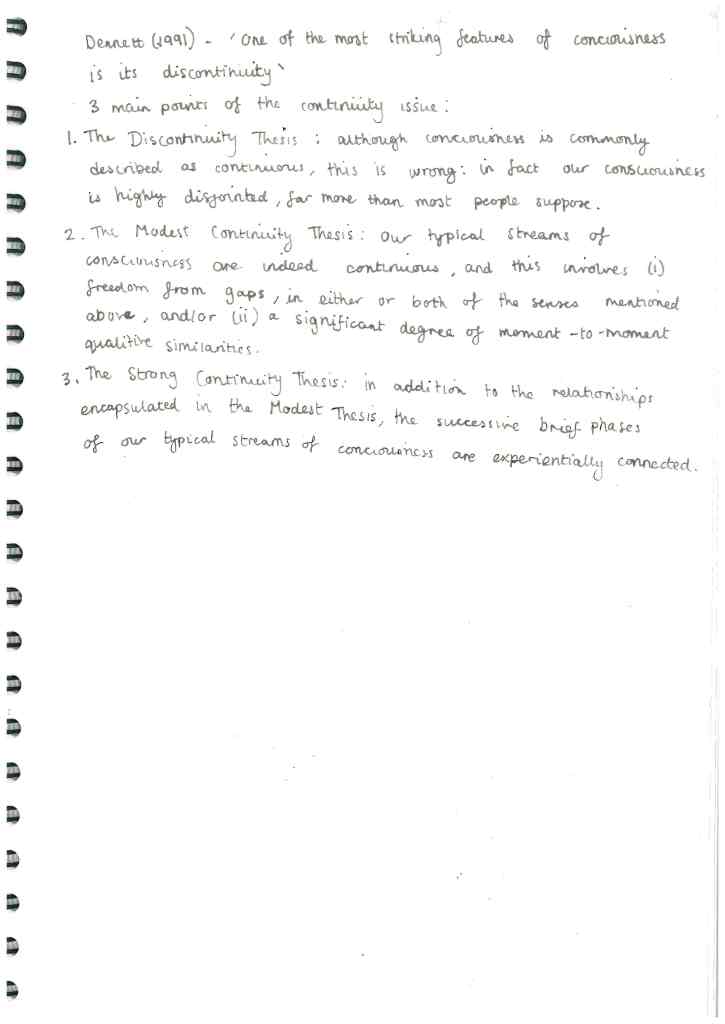 Dennett (1991) - 'One of the most striking features of conciousness
is its discontinuity'
3 main points of the continuity issue:
1. The Discontinuity Thesis : although conciousness is commonly
described as continuous, this is wrong: in fact our consciousness
is highly disjointed, far more than most people suppose.
2. The Modest Continuity Thesis: our typical streams of
consciousness are indeed continuous, and this involves (i)
freedom from gaps, in either or both of the senses mentioned
above, and/or (ii) a significant degree of moment-to-moment
qualitive similarities.
3. The Strong Continuity Thesis: in addition to the relationships
encapsulated in the Modest Thesis, the successive brief phases
of our typical streams of conciousness are experientially connected.